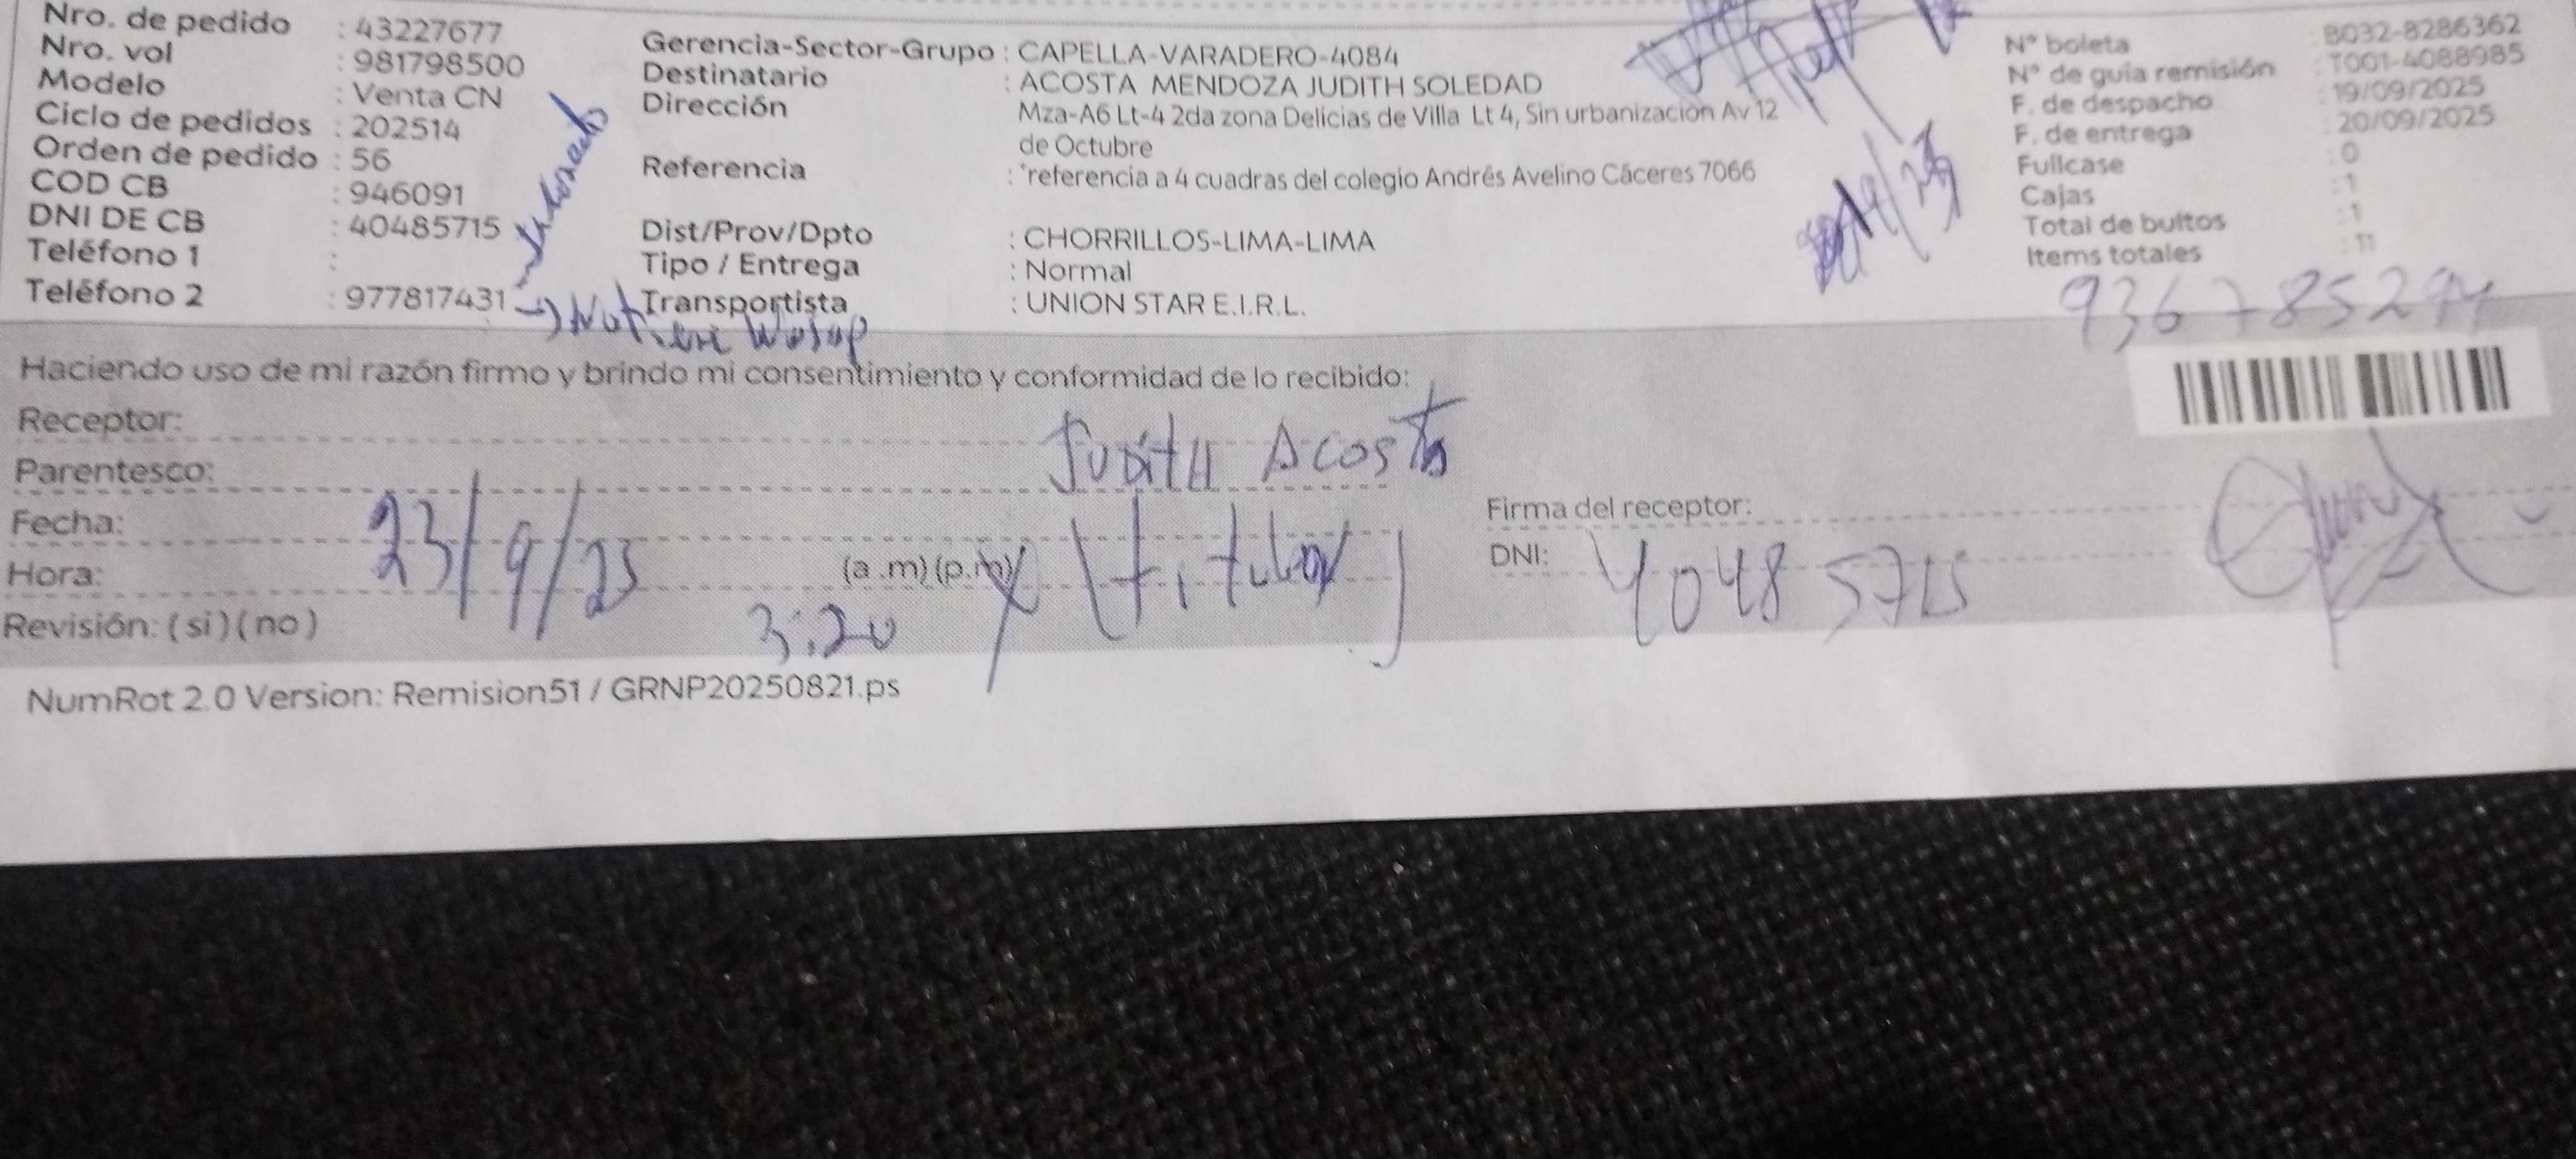 Nro. de pedido : 43227677
Nro. vol : 981798500
Modelo : Venta CN
Ciclo de pedidos : 202514
Orden de pedido : 56
COD CB : 946091
DNI DE CB : 40485715
Teléfono 1 :
Teléfono 2 : 977817431
Gerencia-Sector-Grupo : CAPELLA-VARADERO-4084
Destinatario : ACOSTA MENDOZA JUDITH SOLEDAD
Dirección Mza-A6 Lt-4 2da zona Delicias de Villa Lt 4, Sin urbanización Av 12
de Octubre
Referencia : *referencia a 4 cuadras del colegio Andrés Avelino Cáceres 7066
Dist/Prov/Dpto : CHORRILLOS-LIMA-LIMA
Tipo / Entrega : Normal
Transportista : UNION STAR E.I.R.L.
N° boleta : B032-8286362
N° de guia remisión : T001-4088985
F. de despacho : 19/09/2025
F. de entrega : 20/09/2025
Fullcase : 0
Cajas : 1
Total de bultos : 1
Items totales : 11
Haciendo uso de mi razón firmo y brindo mi consentimiento y conformidad de lo recibido:
Receptor: Judith Acosta
Parentesco: (titular)
Fecha: 23/9/25
Hora: 3:20 (a.m)(p.m)
Revisión: (si)(no)
Firma del receptor:
DNI: 40485715
NumRot 2.0 Version: Remision51 / GRNP20250821.ps